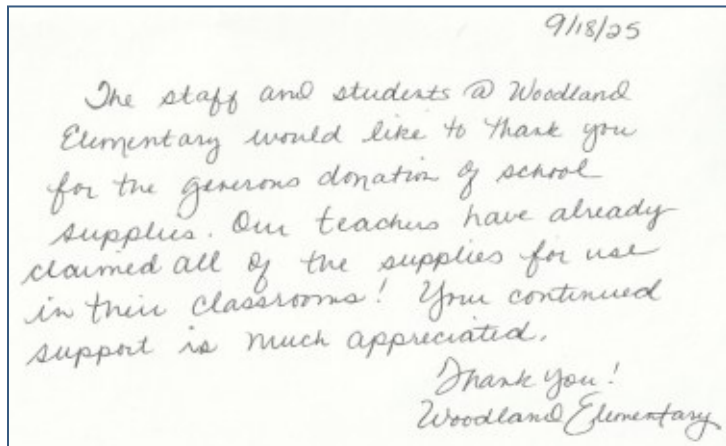 9/18/25
The staff and students @ Woodland
Elementary would like to thank you
for the generous donation of school
supplies. Our teachers have already
claimed all of the supplies for use
in their classrooms! Your continued
support is much appreciated.
Thank you!
Woodland Elementary